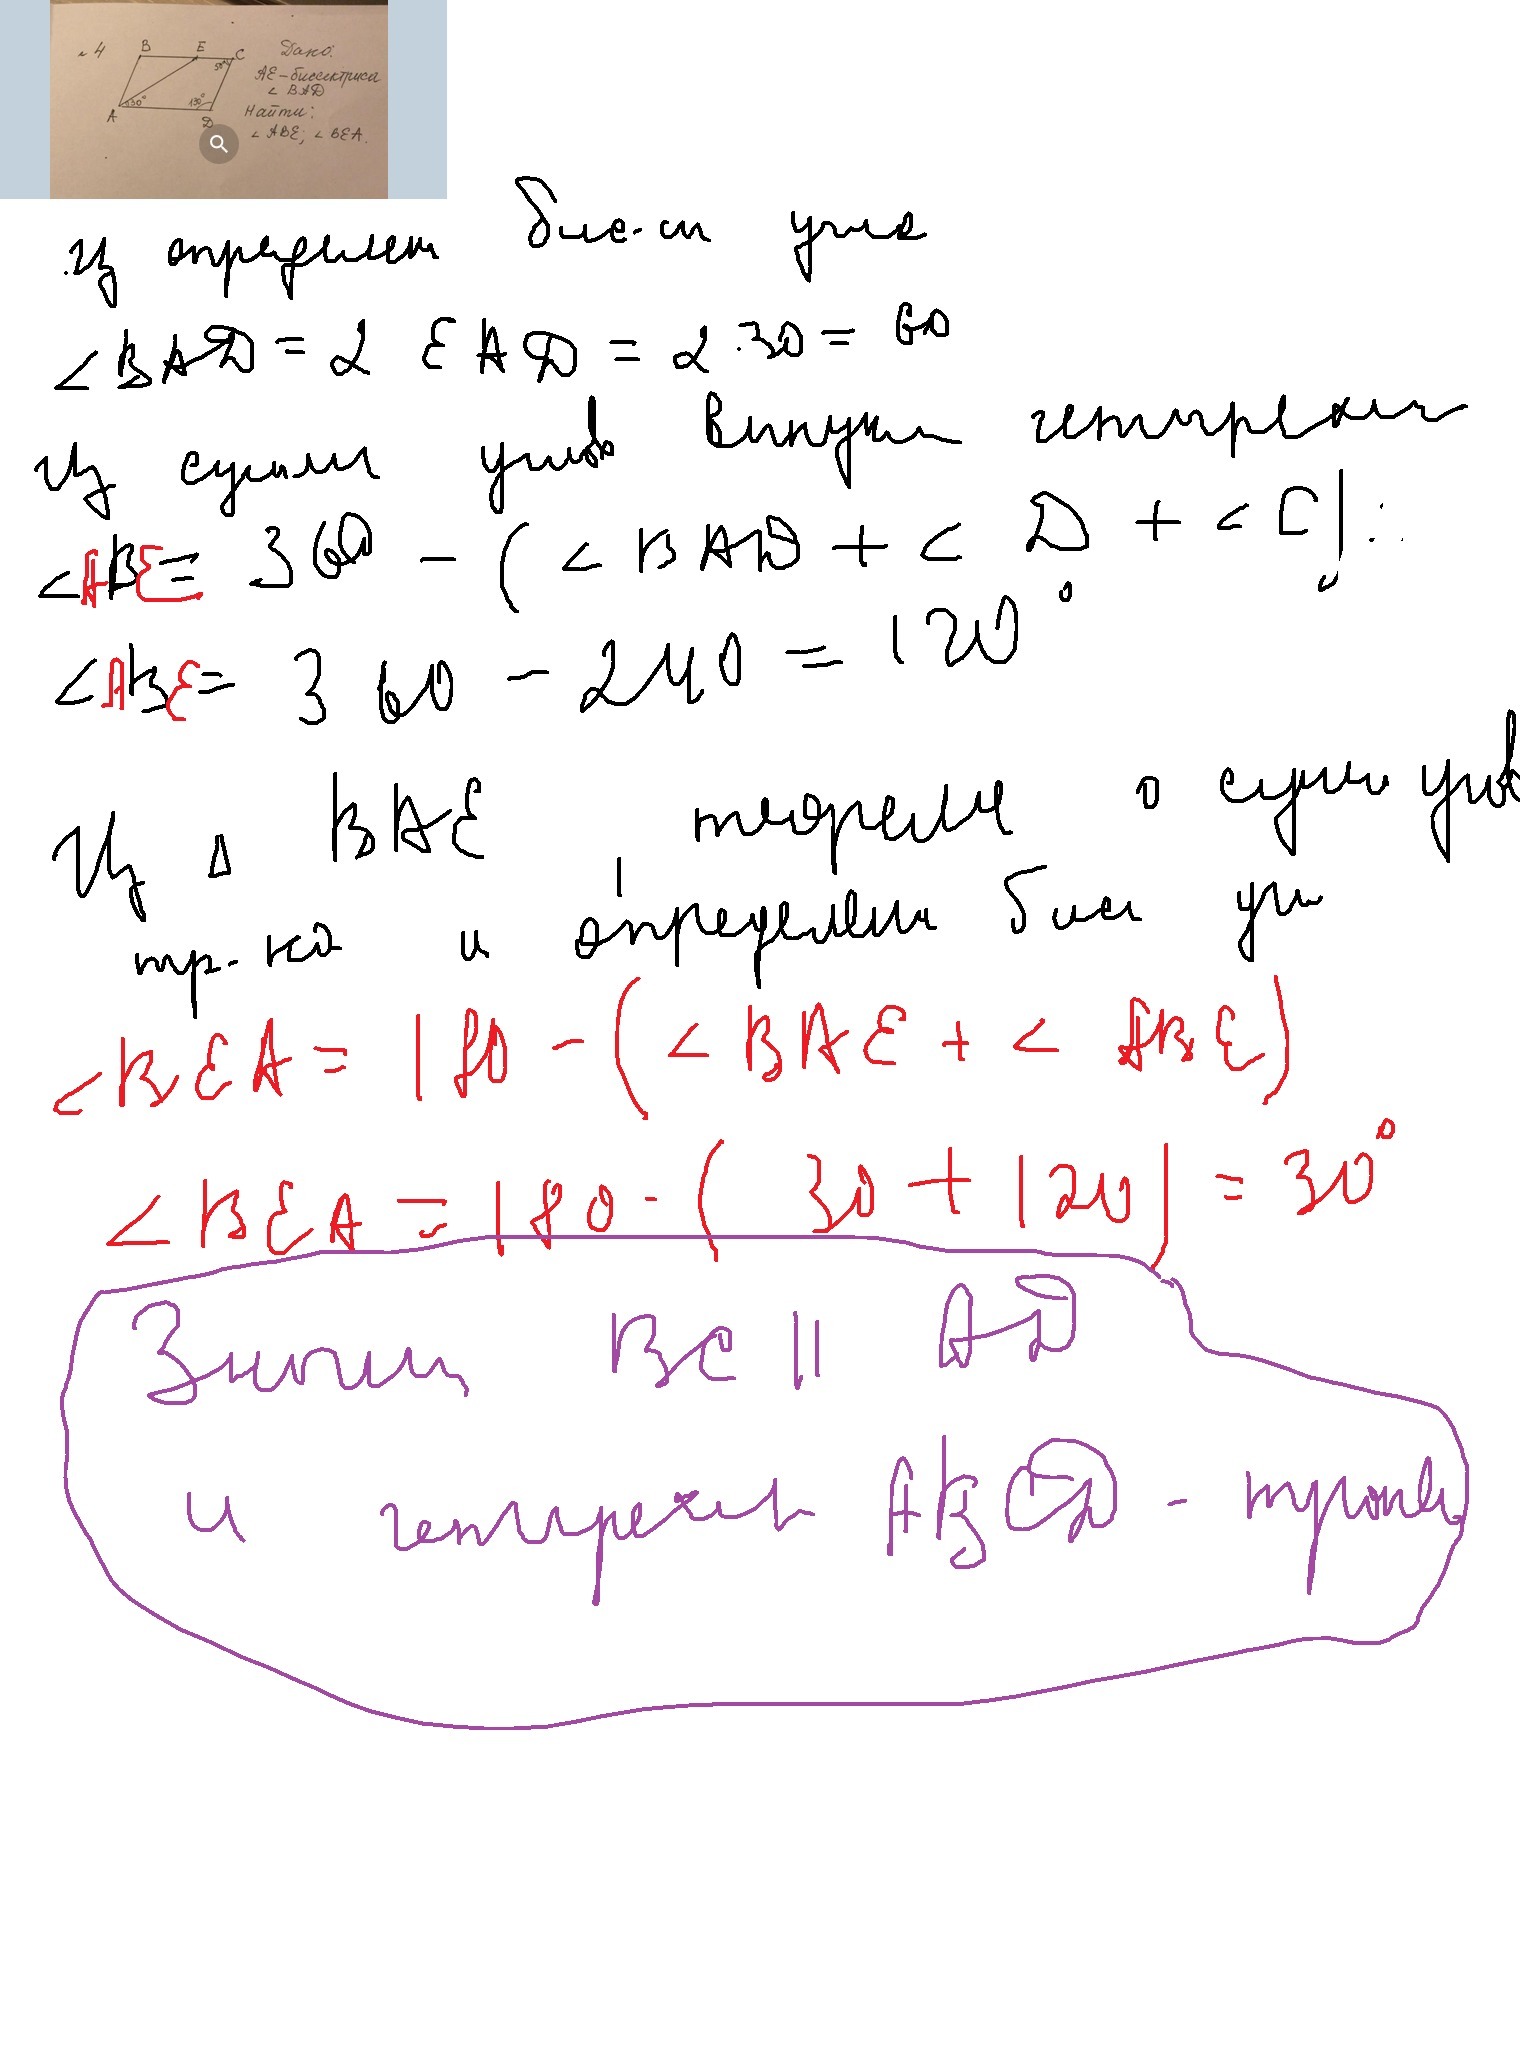 № 4
B E C
50°
A 30° 130° D
Дано:
AE – биссектриса
∠ BAD
Найти:
∠ ABE; ∠ BEA.
Из определен бис-си угла
∠BAD = 2 EAD = 2·30 = 60
Из суммы углов четырех
∠ABE = 360 – (∠BAD + ∠D + ∠C):
∠ABE = 360 – 240 = 120°
Из Δ BAE, теорема о сумм углов
тр-ка и определен бисс уг
∠BEA = 180 – (∠BAE + ∠ABE)
∠BEA = 180 - (30 + 120) = 30°
Значит BC || AD
и четырех ABCD - трапец